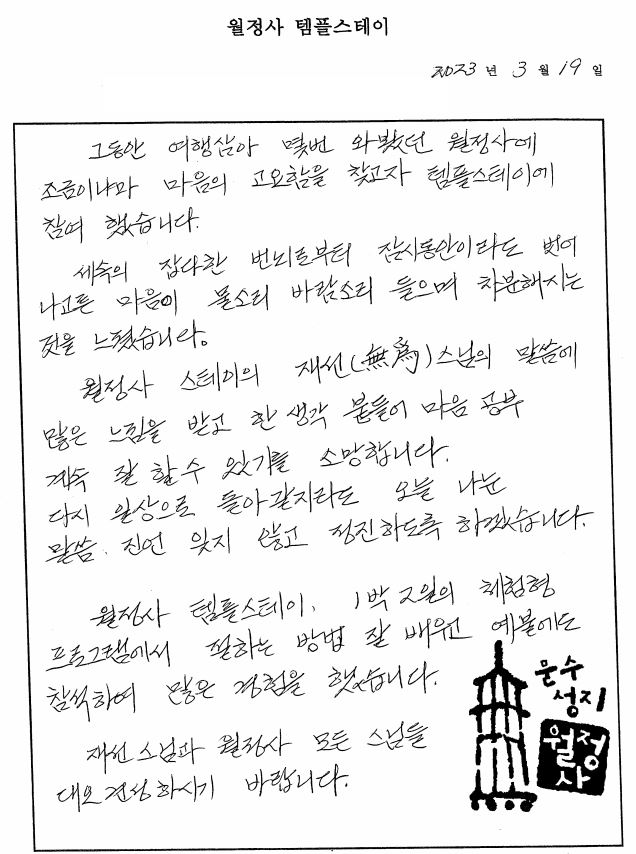 월정사 템플스테이
2023 년 3 월 19 일
그동안 여행삼아 몇번 와봤던 월정사에
조금이나마 마음의 고요함을 찾고자 템플스테이에
참여 했습니다.
세속의 잡다한 번뇌로부터 잠시동안이라도 벗어
나고픈 마음이 물소리 바람소리 들으며 차분해지는
것을 느꼈습니다.
월정사 스테이의 재선(無爲)스님의 말씀에
많은 느낌을 받고 한 생각 붙들어 마음 공부
계속 잘 할 수 있기를 소망합니다.
다시 일상으로 돌아갈지라도 오늘 나눈
말씀. 진언 잊지 않고 정진하도록 하겠습니다.
월정사 템플스테이, 1박 2일의 체험형
프로그램에서 절하는 방법 잘 배우고 예불에도
참석하여 많은 경험을 했습니다.
재선 스님과 월정사 모든 스님들
대오견성하시기 바랍니다.
문수
성지
월정
사